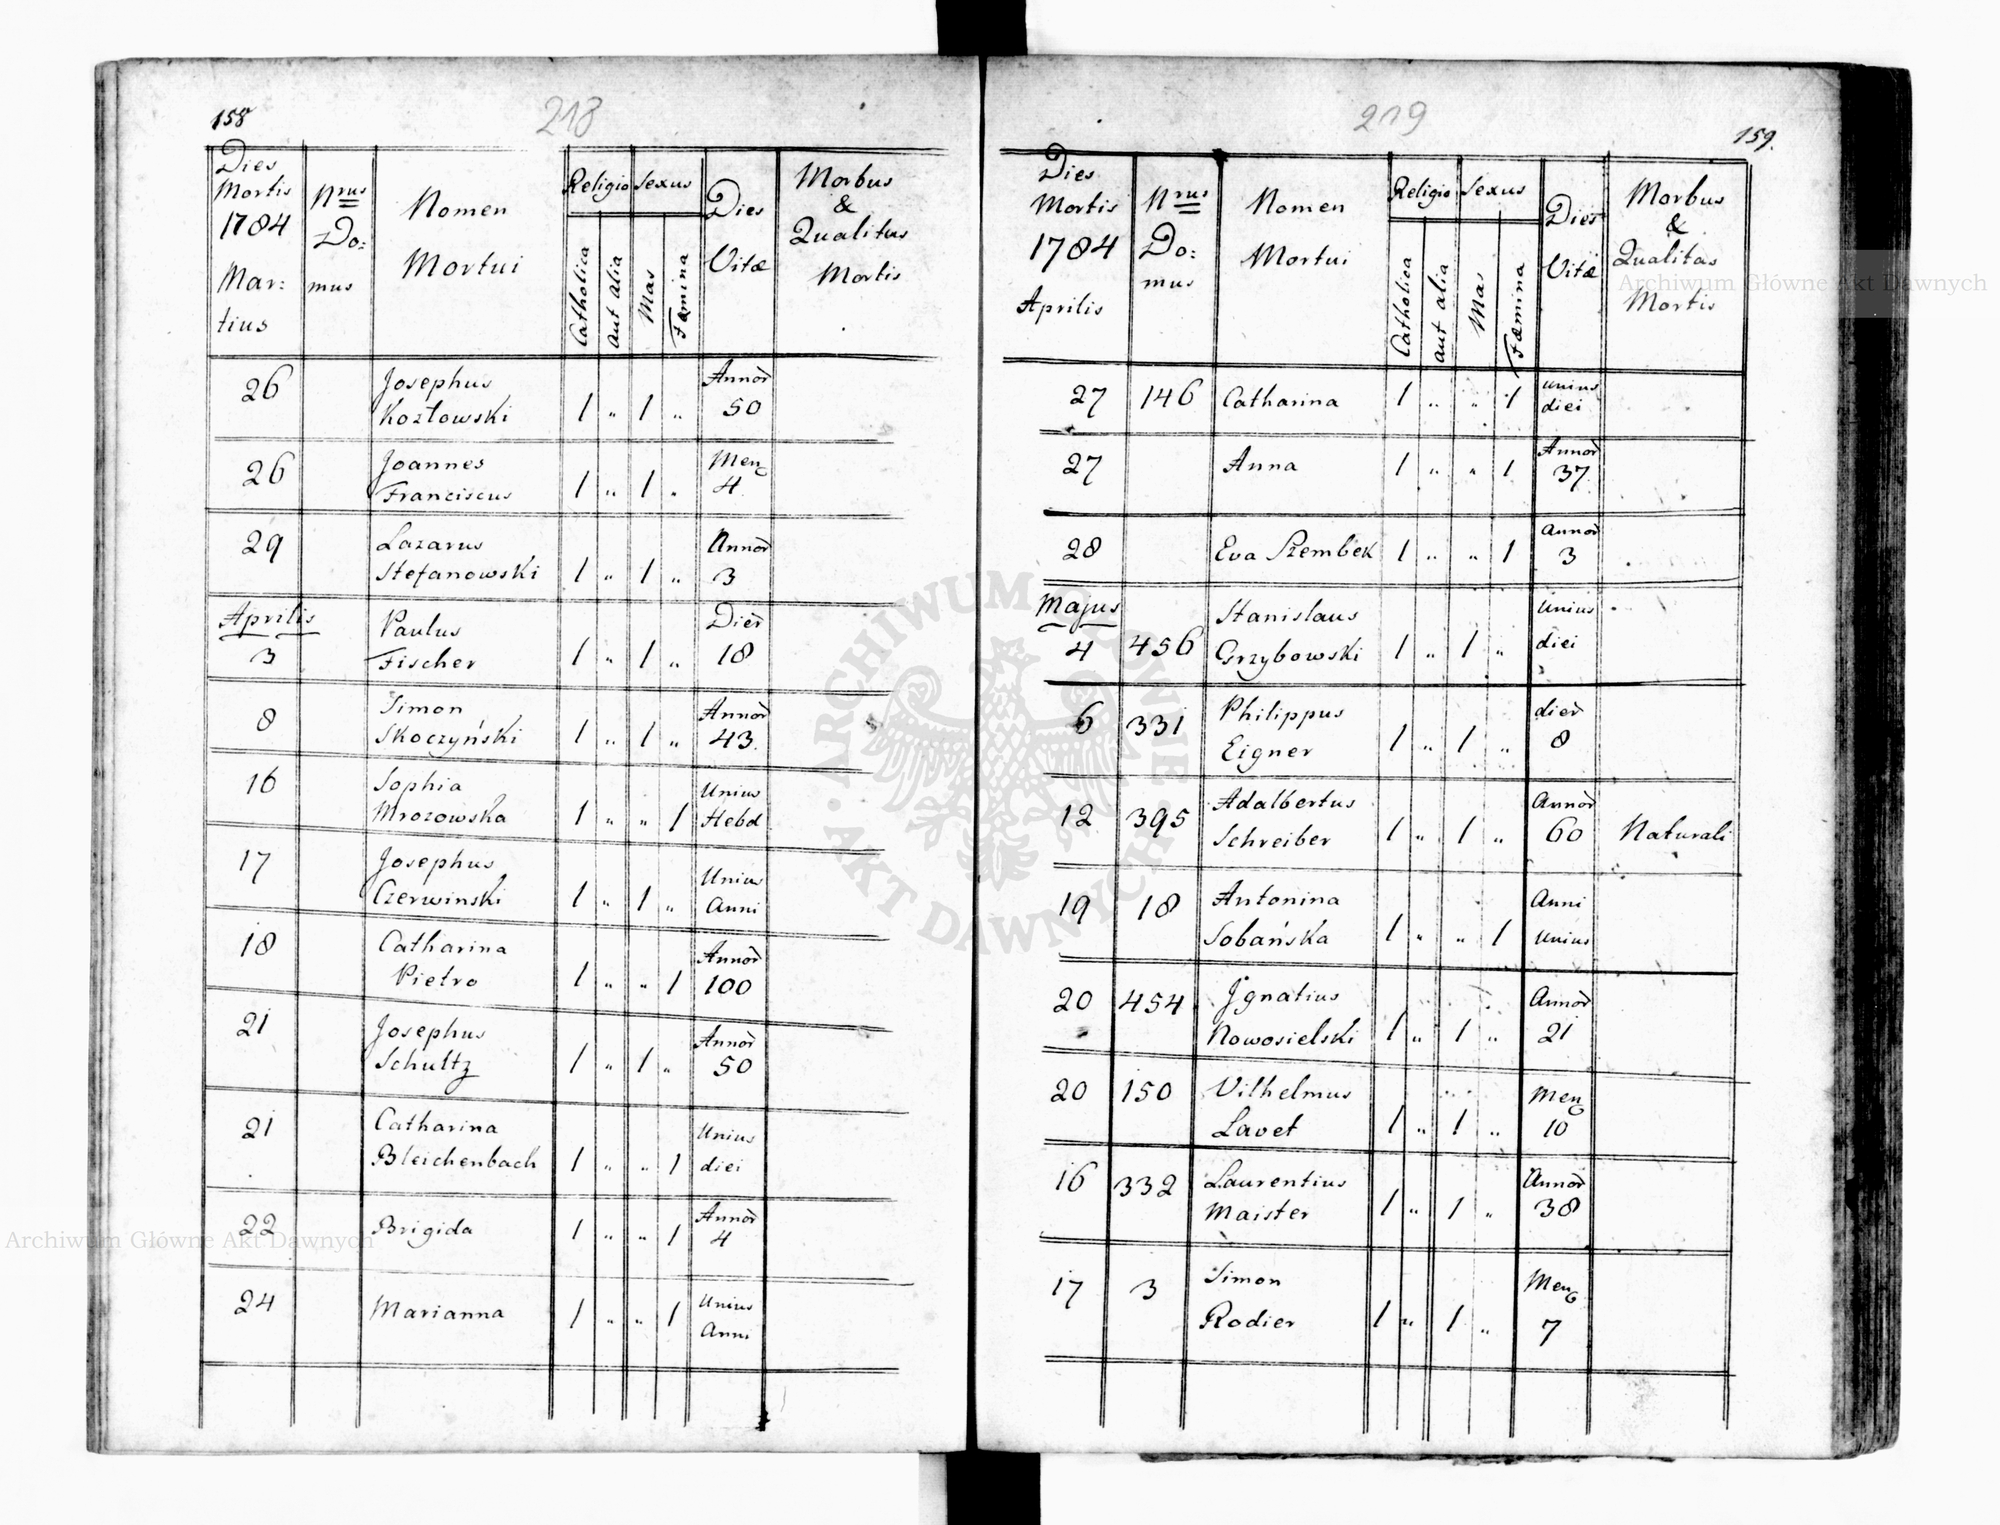 158
218
Dies
Mortis
1784
Mar:
tius
Nrus
Do:
mus
Nomen
Mortui
Religio
Catholica
aut alia
Sexus
Mas
Fæmina
Dies
Vitæ
Morbus
&
Qualitas
Mortis
26 Josephus Annor
Kozłowski 1 „ 1 „ 50
26 Joannes Men
Franciscus 1 „ 1 „ 4
29 Lazarus Annor
Stefanowski 1 „ 1 „ 3
Aprilis Paulus Dier
3 Fischer 1 „ 1 „ 18
8 Simon Annor
Skoczyński 1 „ 1 „ 43.
16 Sophia Unius
Mrozowska 1 „ „ 1 Hebd
17 Josephus Unius
Czerwinski 1 „ 1 „ Anni
18 Catharina Annor
Pietro 1 „ „ 1 100
21 Josephus Annor
Schultz 1 „ 1 „ 50
21 Catharina Unius
Bleichenbach 1 „ „ 1 diei
22 Brigida 1 „ „ 1 Annor
4
24 Marianna 1 „ „ 1 Unius
Anni
219
159.
Dies
Mortis
1784
Aprilis
Nrus
Do:
mus
Nomen
Mortui
Religio
Catholica
aut alia
Sexus
Mas
Fæmina
Dies
Vitæ
Morbus
&
Qualitas
Mortis
27 146 Catharina 1 „ „ 1 unius
diei
27 Anna 1 „ „ 1 Annor
37.
28 Eva Szembek 1 „ „ 1 Annor
3
Majus Stanislaus Unius
4 456 Grzybowski 1 „ 1 „ diei
6 331 Philippus dier
Eigner 1 „ 1 „ 8
12 395 Adalbertus Annor
Schreiber 1 „ 1 „ 60 Naturali
19 18 Antonina Anni
Sobańska 1 „ „ 1 Unius
20 454 Jgnatius Annor
Nowosielski 1 „ 1 „ 21
20 150 Vilhelmus Men
Lavet 1 „ 1 „ 10
16 332 Laurentius Annor
Maister 1 „ 1 „ 38
17 3 Simon Men
Rodier 1 „ 1 „ 7
Archiwum Główne Akt Dawnych
Archiwum Główne Akt Dawnych
ARCHIWUM GŁÓWNE
AKT DAWNYCH